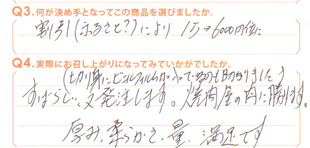 Q3.何が決め手となってこの商品を選びましたか。
割引(ふるさと?)により 1万→6000円位に
Q4.実際にお召し上がりになってみていかがでしたか。
(切り身にビニールフィルムが入って
すばらしい 又発注します。焼肉屋の肉に勝ります。
厚み、柔らかさ、量、満足です